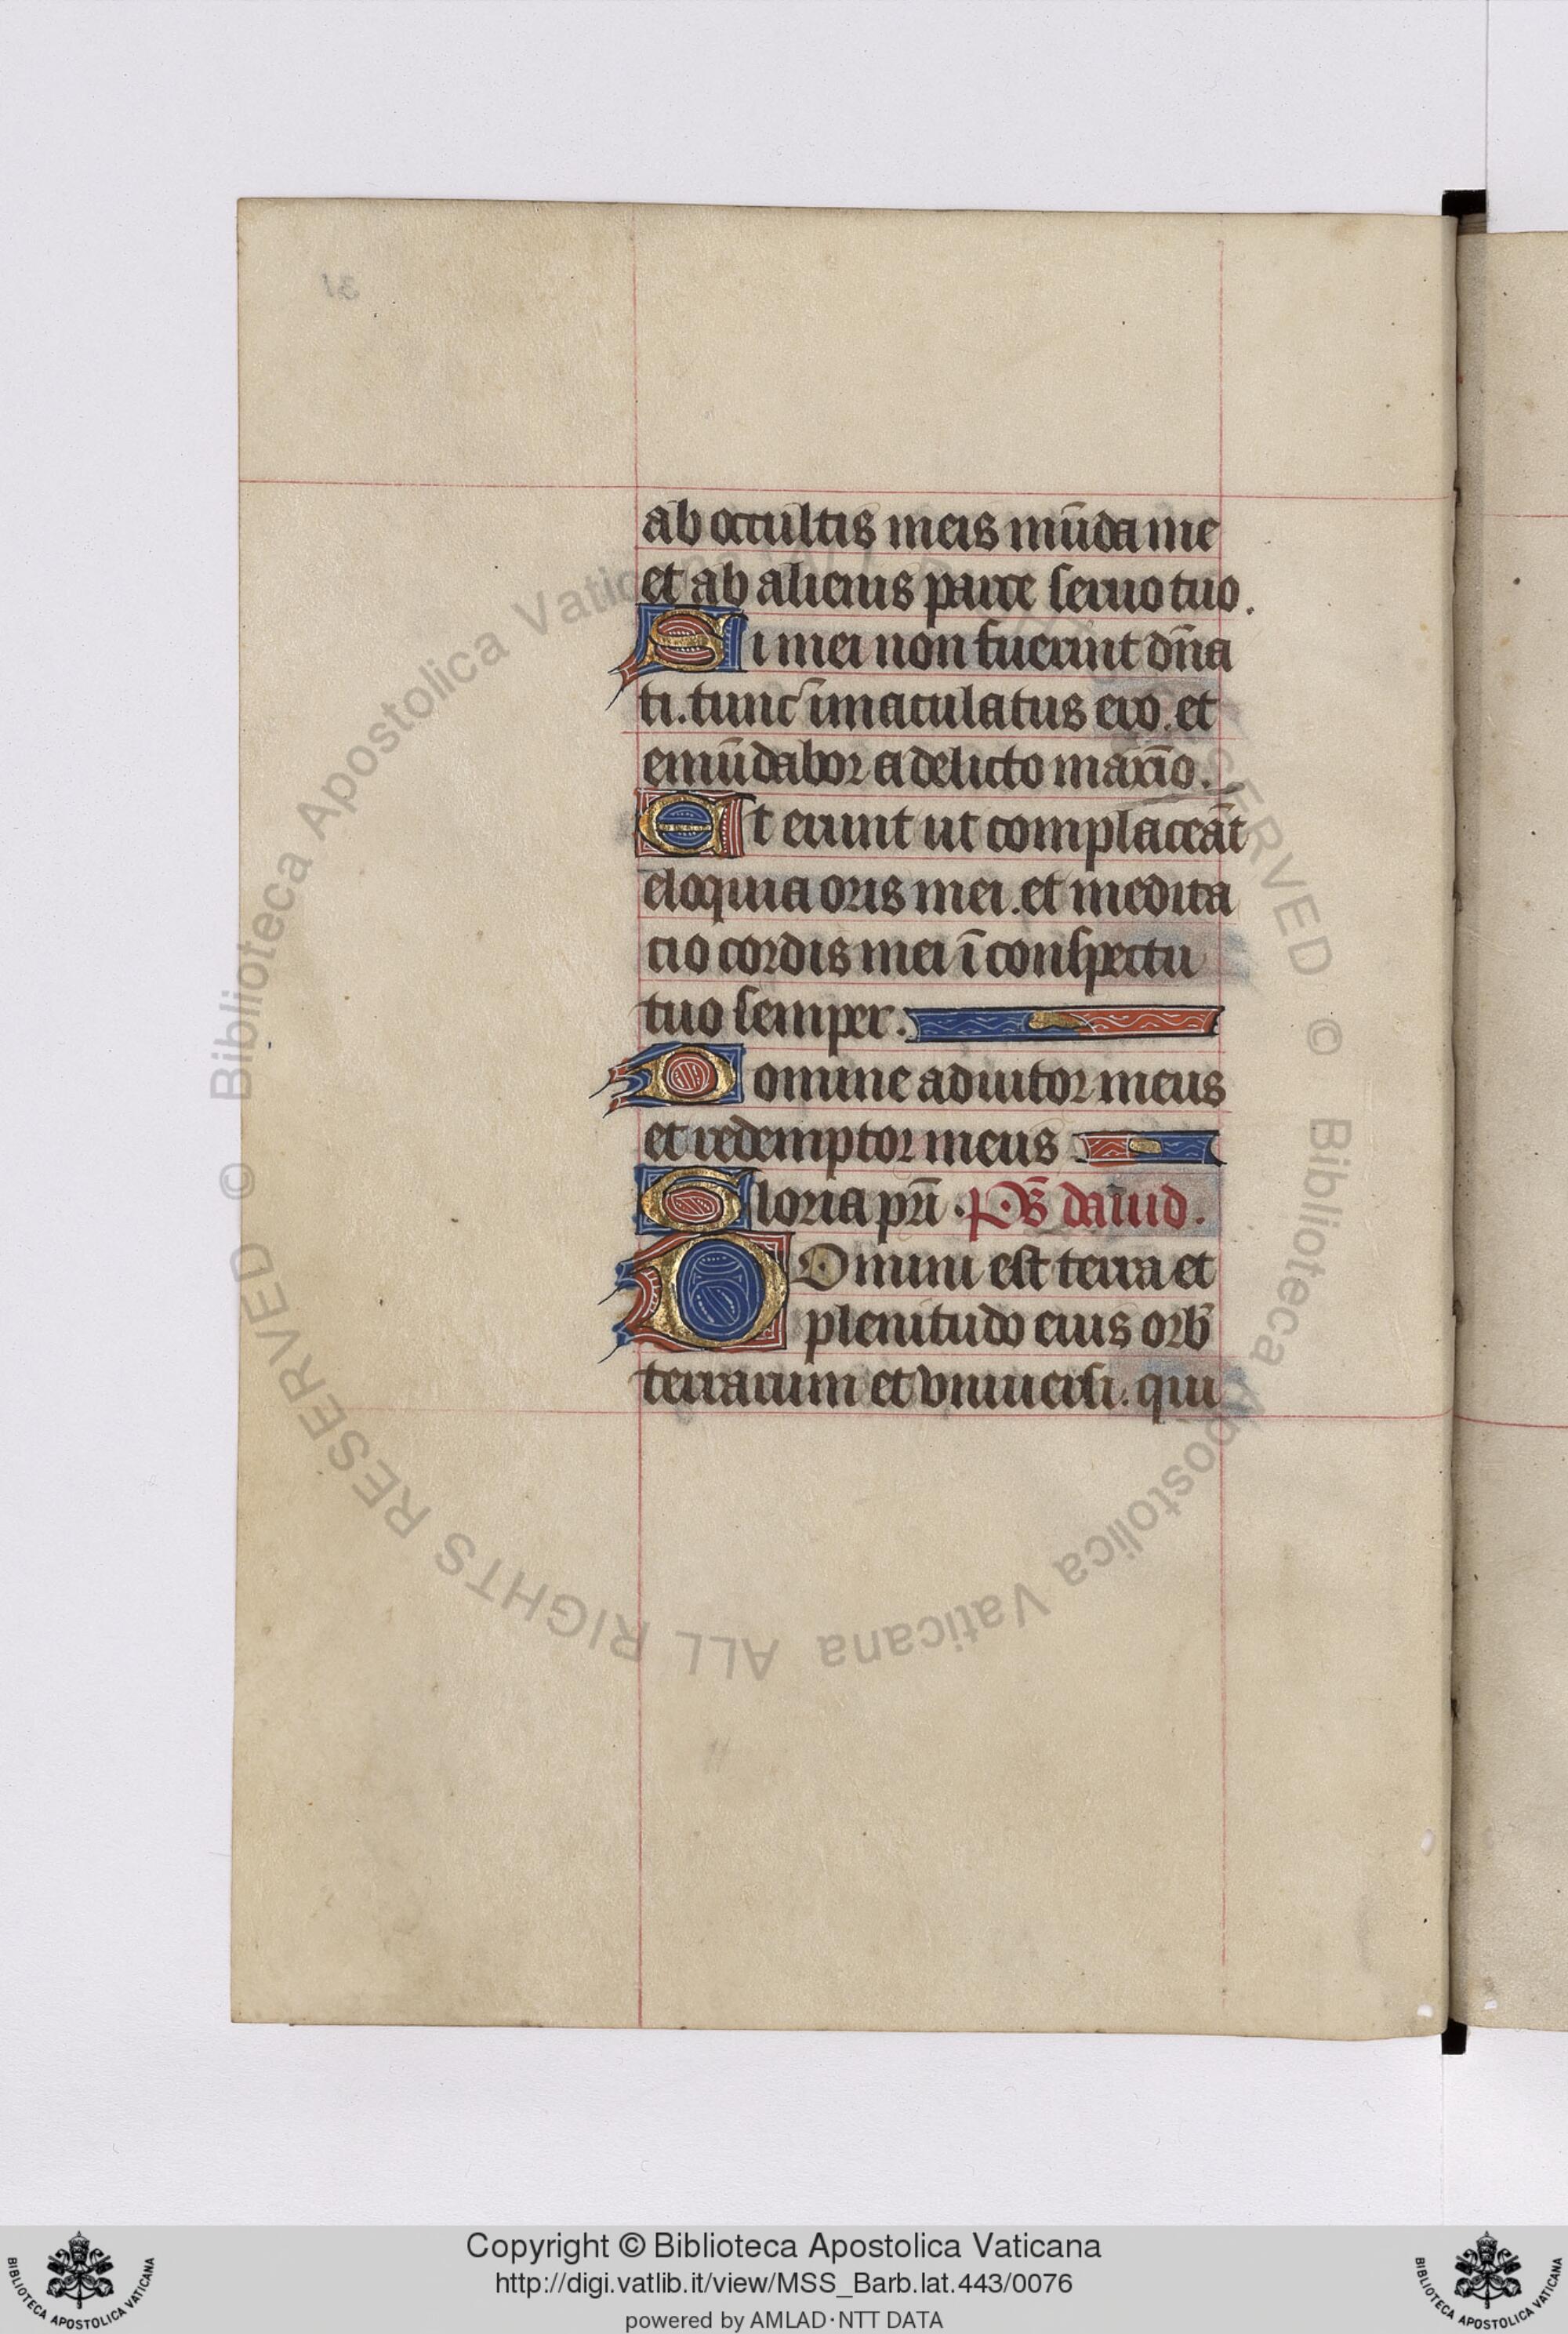 ab occultis meis mūda me
et ab alienis parce seruo tuo.
Si mei non fuerint dn̄a
ti. tunc īmaculatus ero. et
emūdabor a delicto maxīo.
Et erunt ut complaceāt
eloquia oris mei. et medita
cio cordis mei ī conspectu
tuo semper.
Domine adiutor meus
et redemptor meus
Gloria pr̄i. Ps̄ dauid.
DOmini est terra et
plenitudo eius orb̄
terrarum et vniuersi. qui
© Biblioteca Apostolica Vaticana ALL RIGHTS RESERVED © Biblioteca Apostolica Vaticana ALL RIGHTS RESERVED
Copyright © Biblioteca Apostolica Vaticana
http://digi.vatlib.it/view/MSS_Barb.lat.443/0076
powered by AMLAD·NTT DATA
BIBLIOTECA APOSTOLICA VATICANA
BIBLIOTECA APOSTOLICA VATICANA